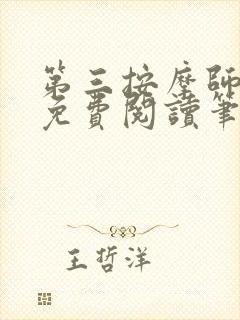 第三按摩師
免費閱讀筆
王哲洋